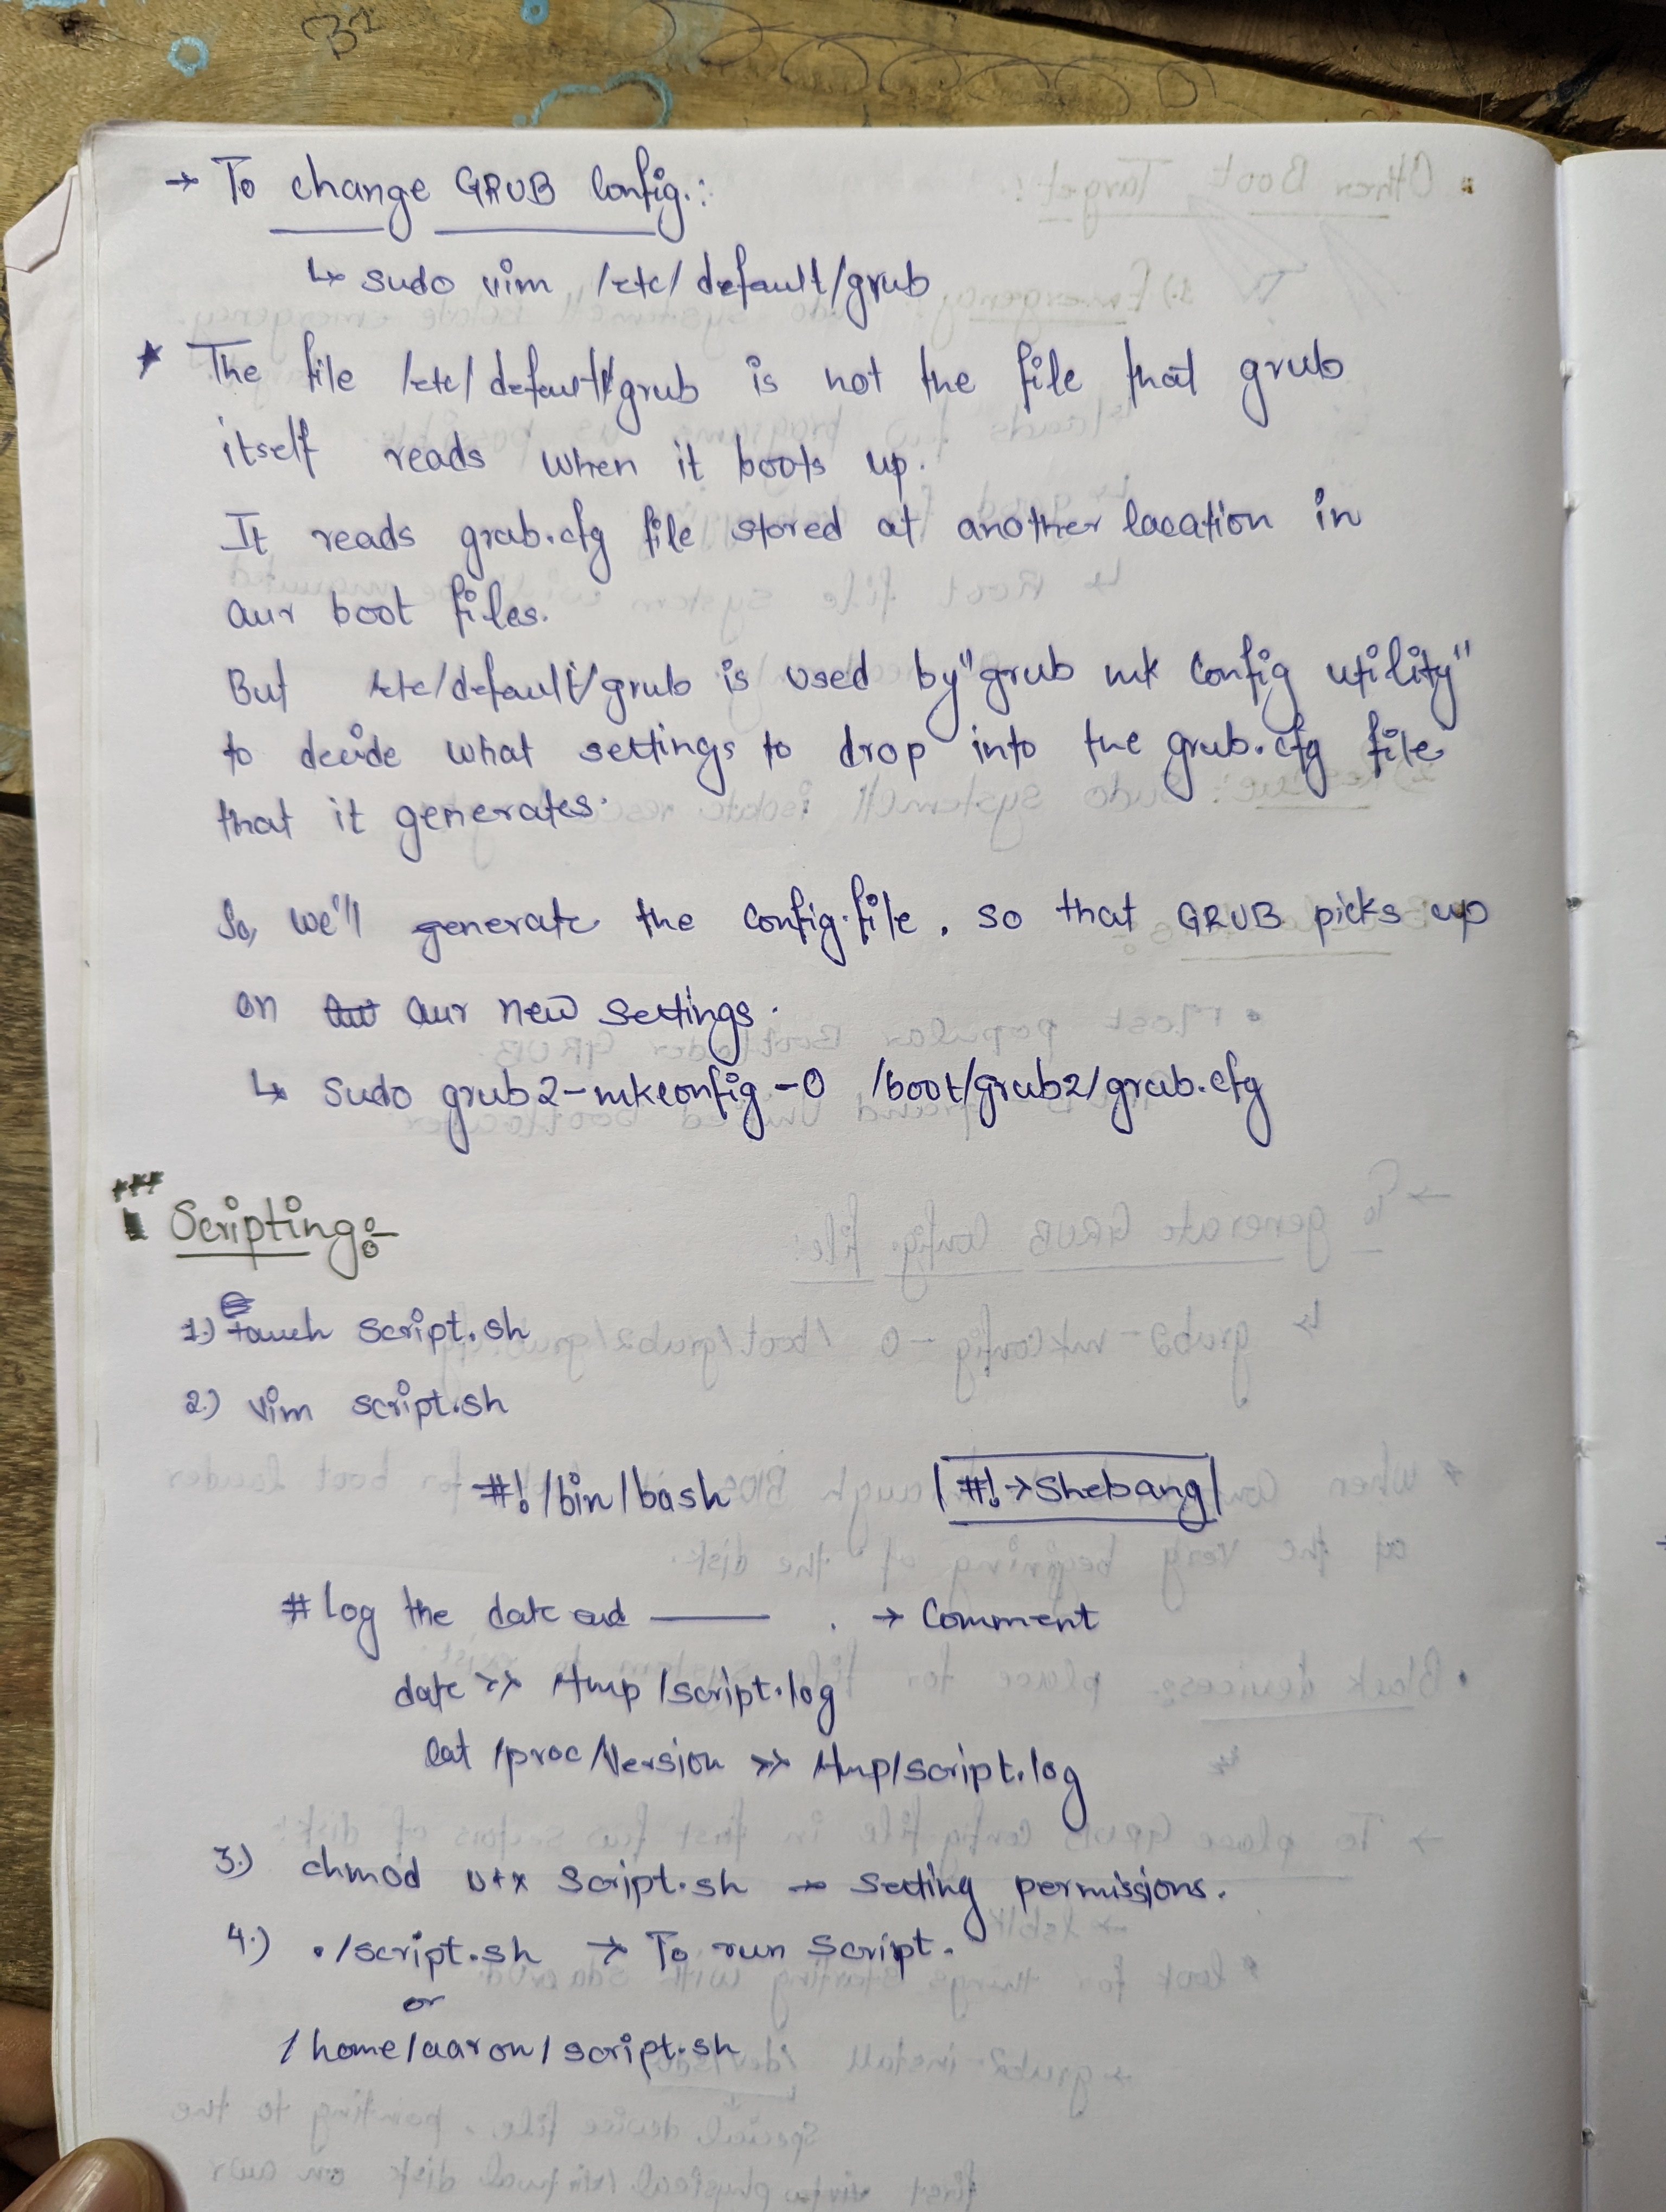 → To change GRUB Config.:
↳ sudo vim /etc/default/grub
* The file /etc/default/grub is not the file that grub
itself reads when it boots up.
It reads grub.cfg file stored at another location in
our boot files.
But /etc/default/grub is used by "grub mk Config utility"
to decide what settings to drop into the grub.cfg file
that it generates.
So, we'll generate the config.file, so that GRUB picks up
on our new settings.
↳ sudo grub2-mkconfig -o /boot/grub2/grub.cfg
*** Scripting:-
1.) touch script.sh
2.) vim script.sh
#!/bin/bash | #!→Shebang |
# log the date and ——— . → Comment
date >> /tmp/script.log
cat /proc/version >> /tmp/script.log
3.) chmod u+x script.sh → Setting permissions.
4.) ./script.sh → To run Script.
or
/home/aaron/script.sh